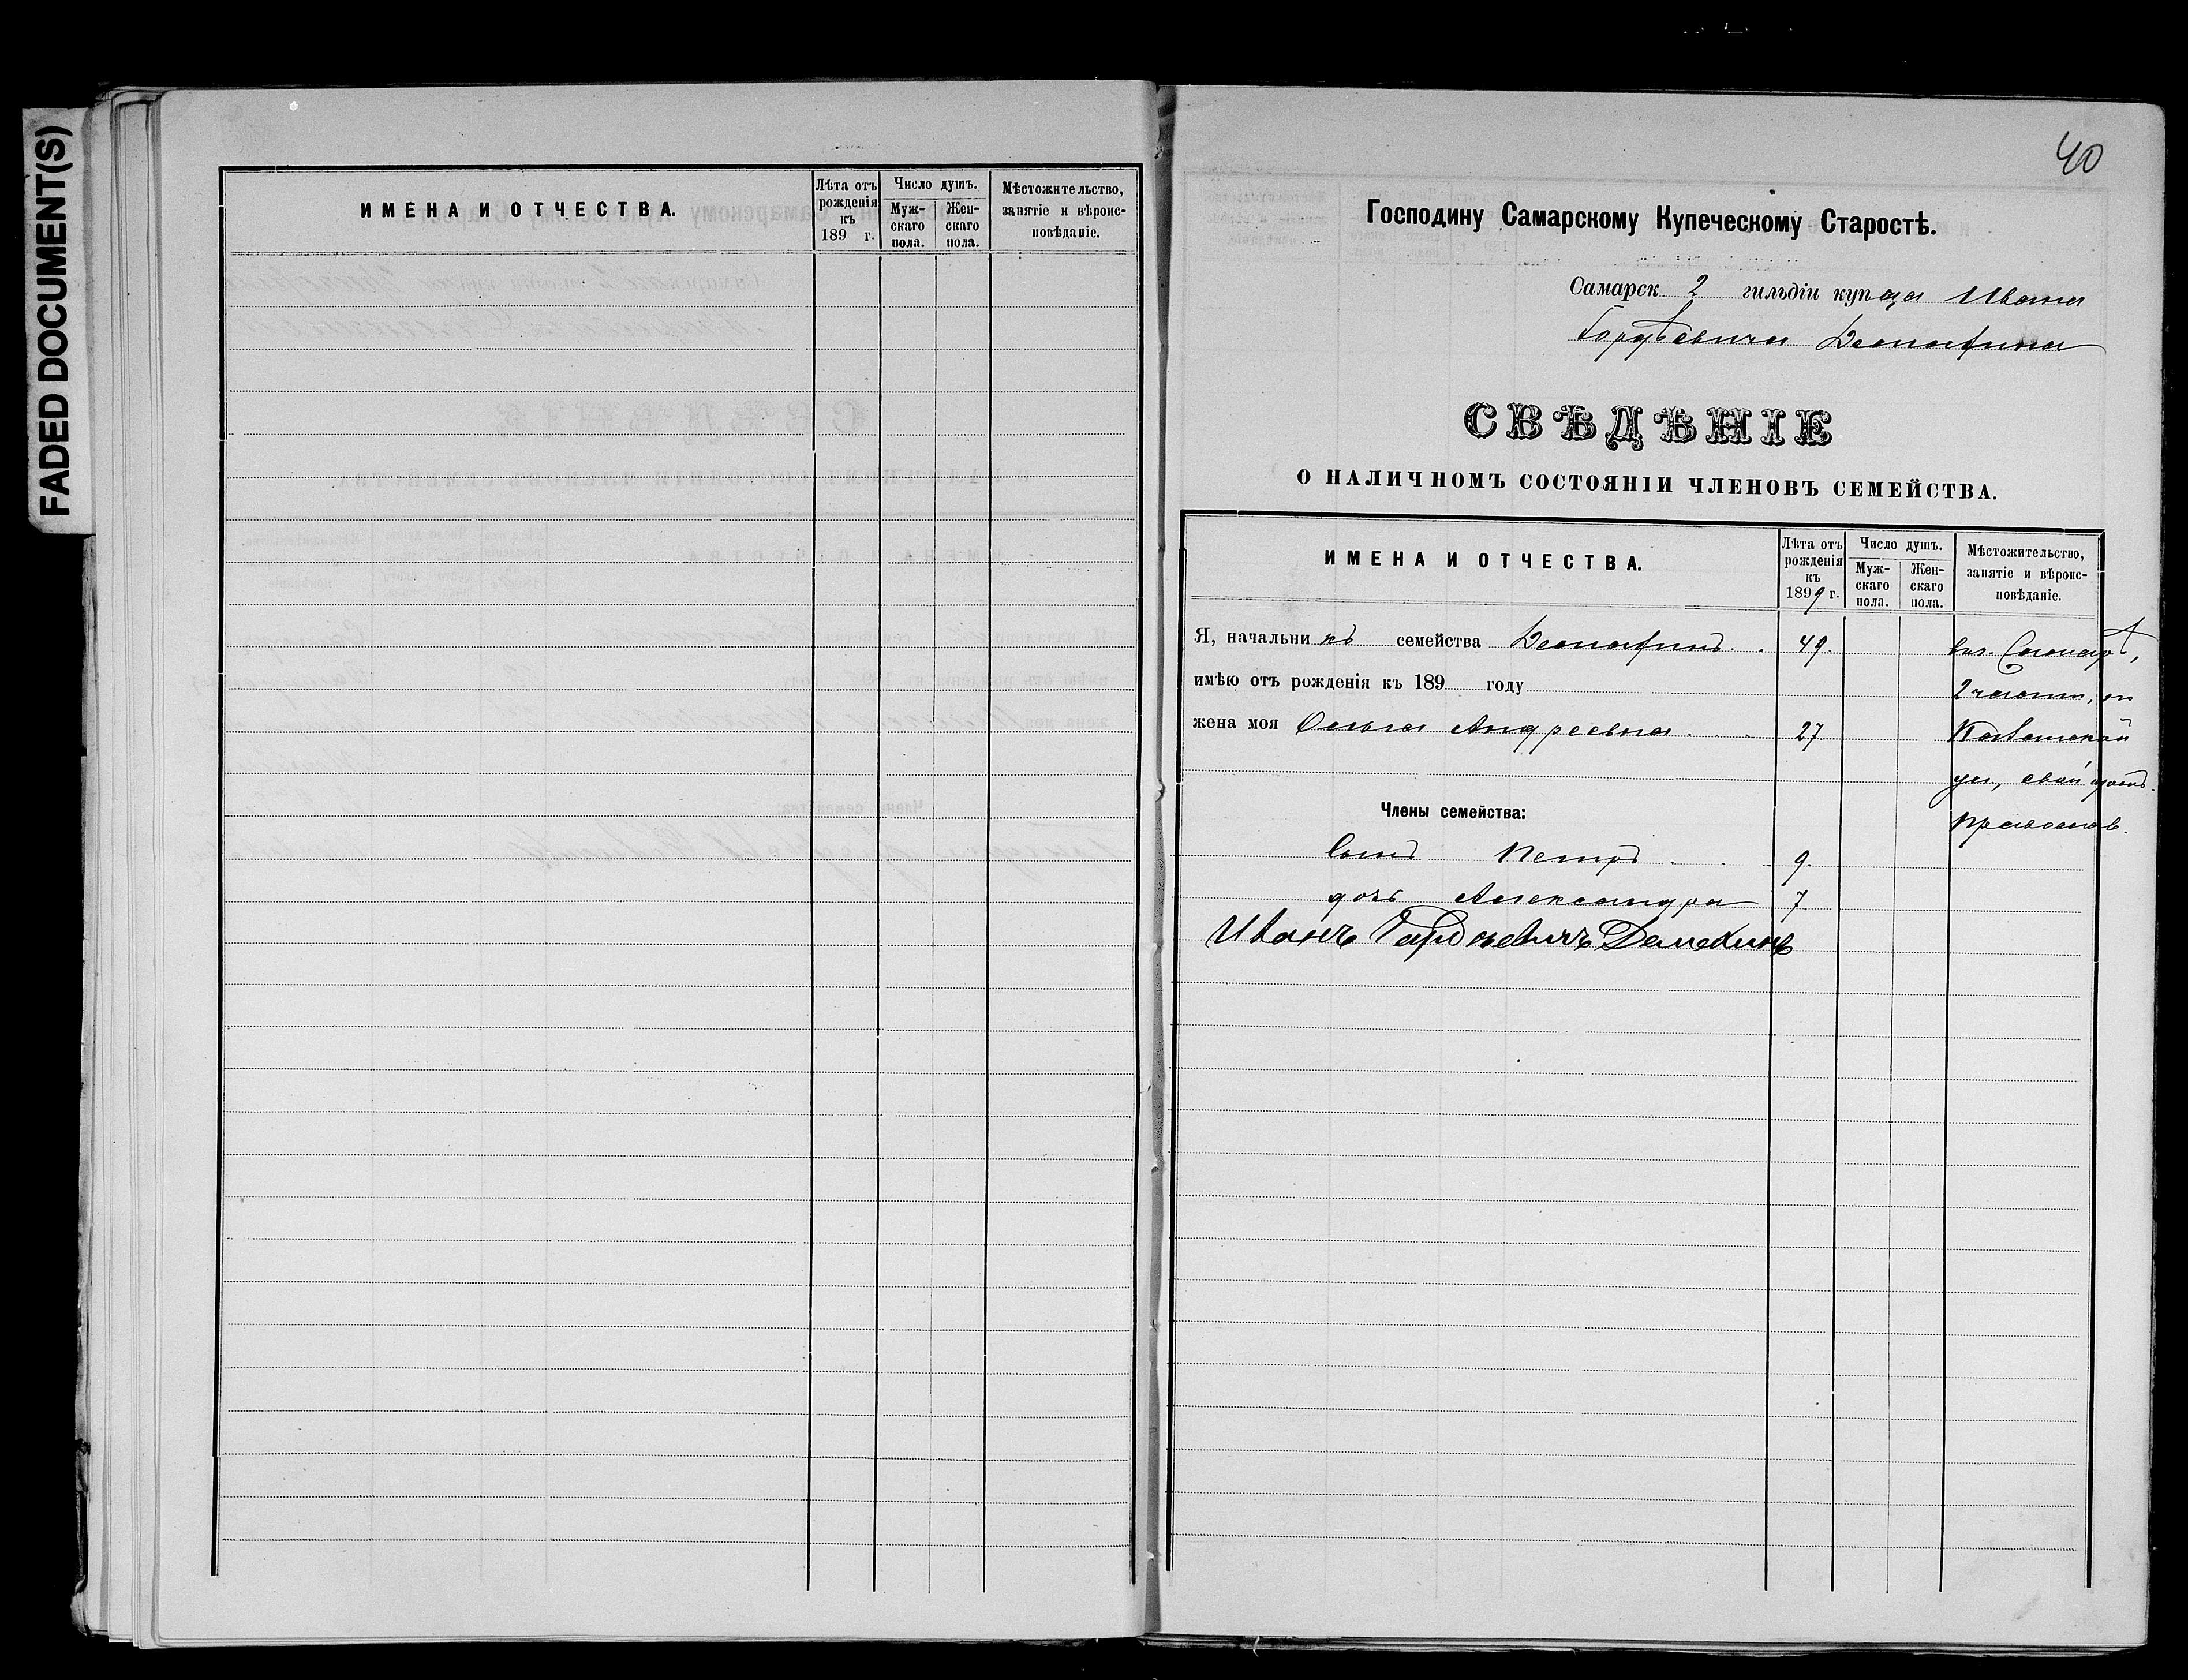 FADED DOCUMENT(S)
ИМЕНА И ОТЧЕСТВА.
Лѣта отъ рожденія къ 189 г.
Число душъ.
Мужскаго пола.
Женскаго пола.
Мѣстожительство, занятіе и вѣроисповѣданіе.
40
Господину Самарскому Купеческому Старостѣ.
Самарск. 2 гильдіи купца Ивана
Гордѣевича
СВѢДѢНІЕ
О НАЛИЧНОМЪ СОСТОЯНІИ ЧЛЕНОВЪ СЕМЕЙСТВА.
ИМЕНА И ОТЧЕСТВА.
Лѣта отъ рожденія къ 1899 г.
Число душъ.
Мужскаго пола.
Женскаго пола.
Мѣстожительство, занятіе и вѣроисповѣданіе.
Я, начальникъ семейства 49. въ г. Самарѣ,
имѣю отъ рожденія къ 189 году 2 части, на
жена моя Ольга Андреевна 27
ул., свой домъ.
Члены семейства:
православ.
Сынъ Петръ 9.
дочь Александра 7
Иванъ